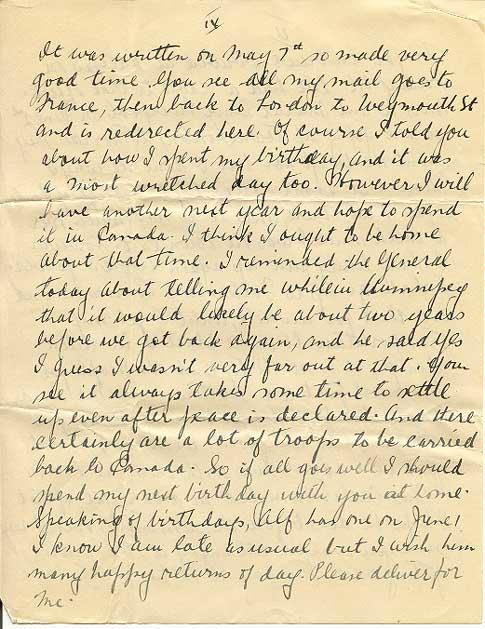 IX
It was written on May 7th so made very
good time. You see all my mail goes to
France, then back to London to Weymouth St
and is redirected here. Of course I told you
about how I spent my birthday, and it was
a most wretched day too. However I will
have another next year and hope to spend
it in Canada. I think I ought to be home
about that time. I reminded the General
today about telling me while in Winnipeg
that it would likely be about two years
before we got back again, and he said yes
I guess I wasn't very far out at that. You
see it always takes some time to settle
up even after peace is declared. And there
certainly are a lot of troops to be carried
back to Canada. So if all goes well I should
spend my next birthday with you at home.
Speaking of birthdays, Alf has one on June 1
I know I am late as usual but I wish him
many happy returns of day. Please deliver for
me.